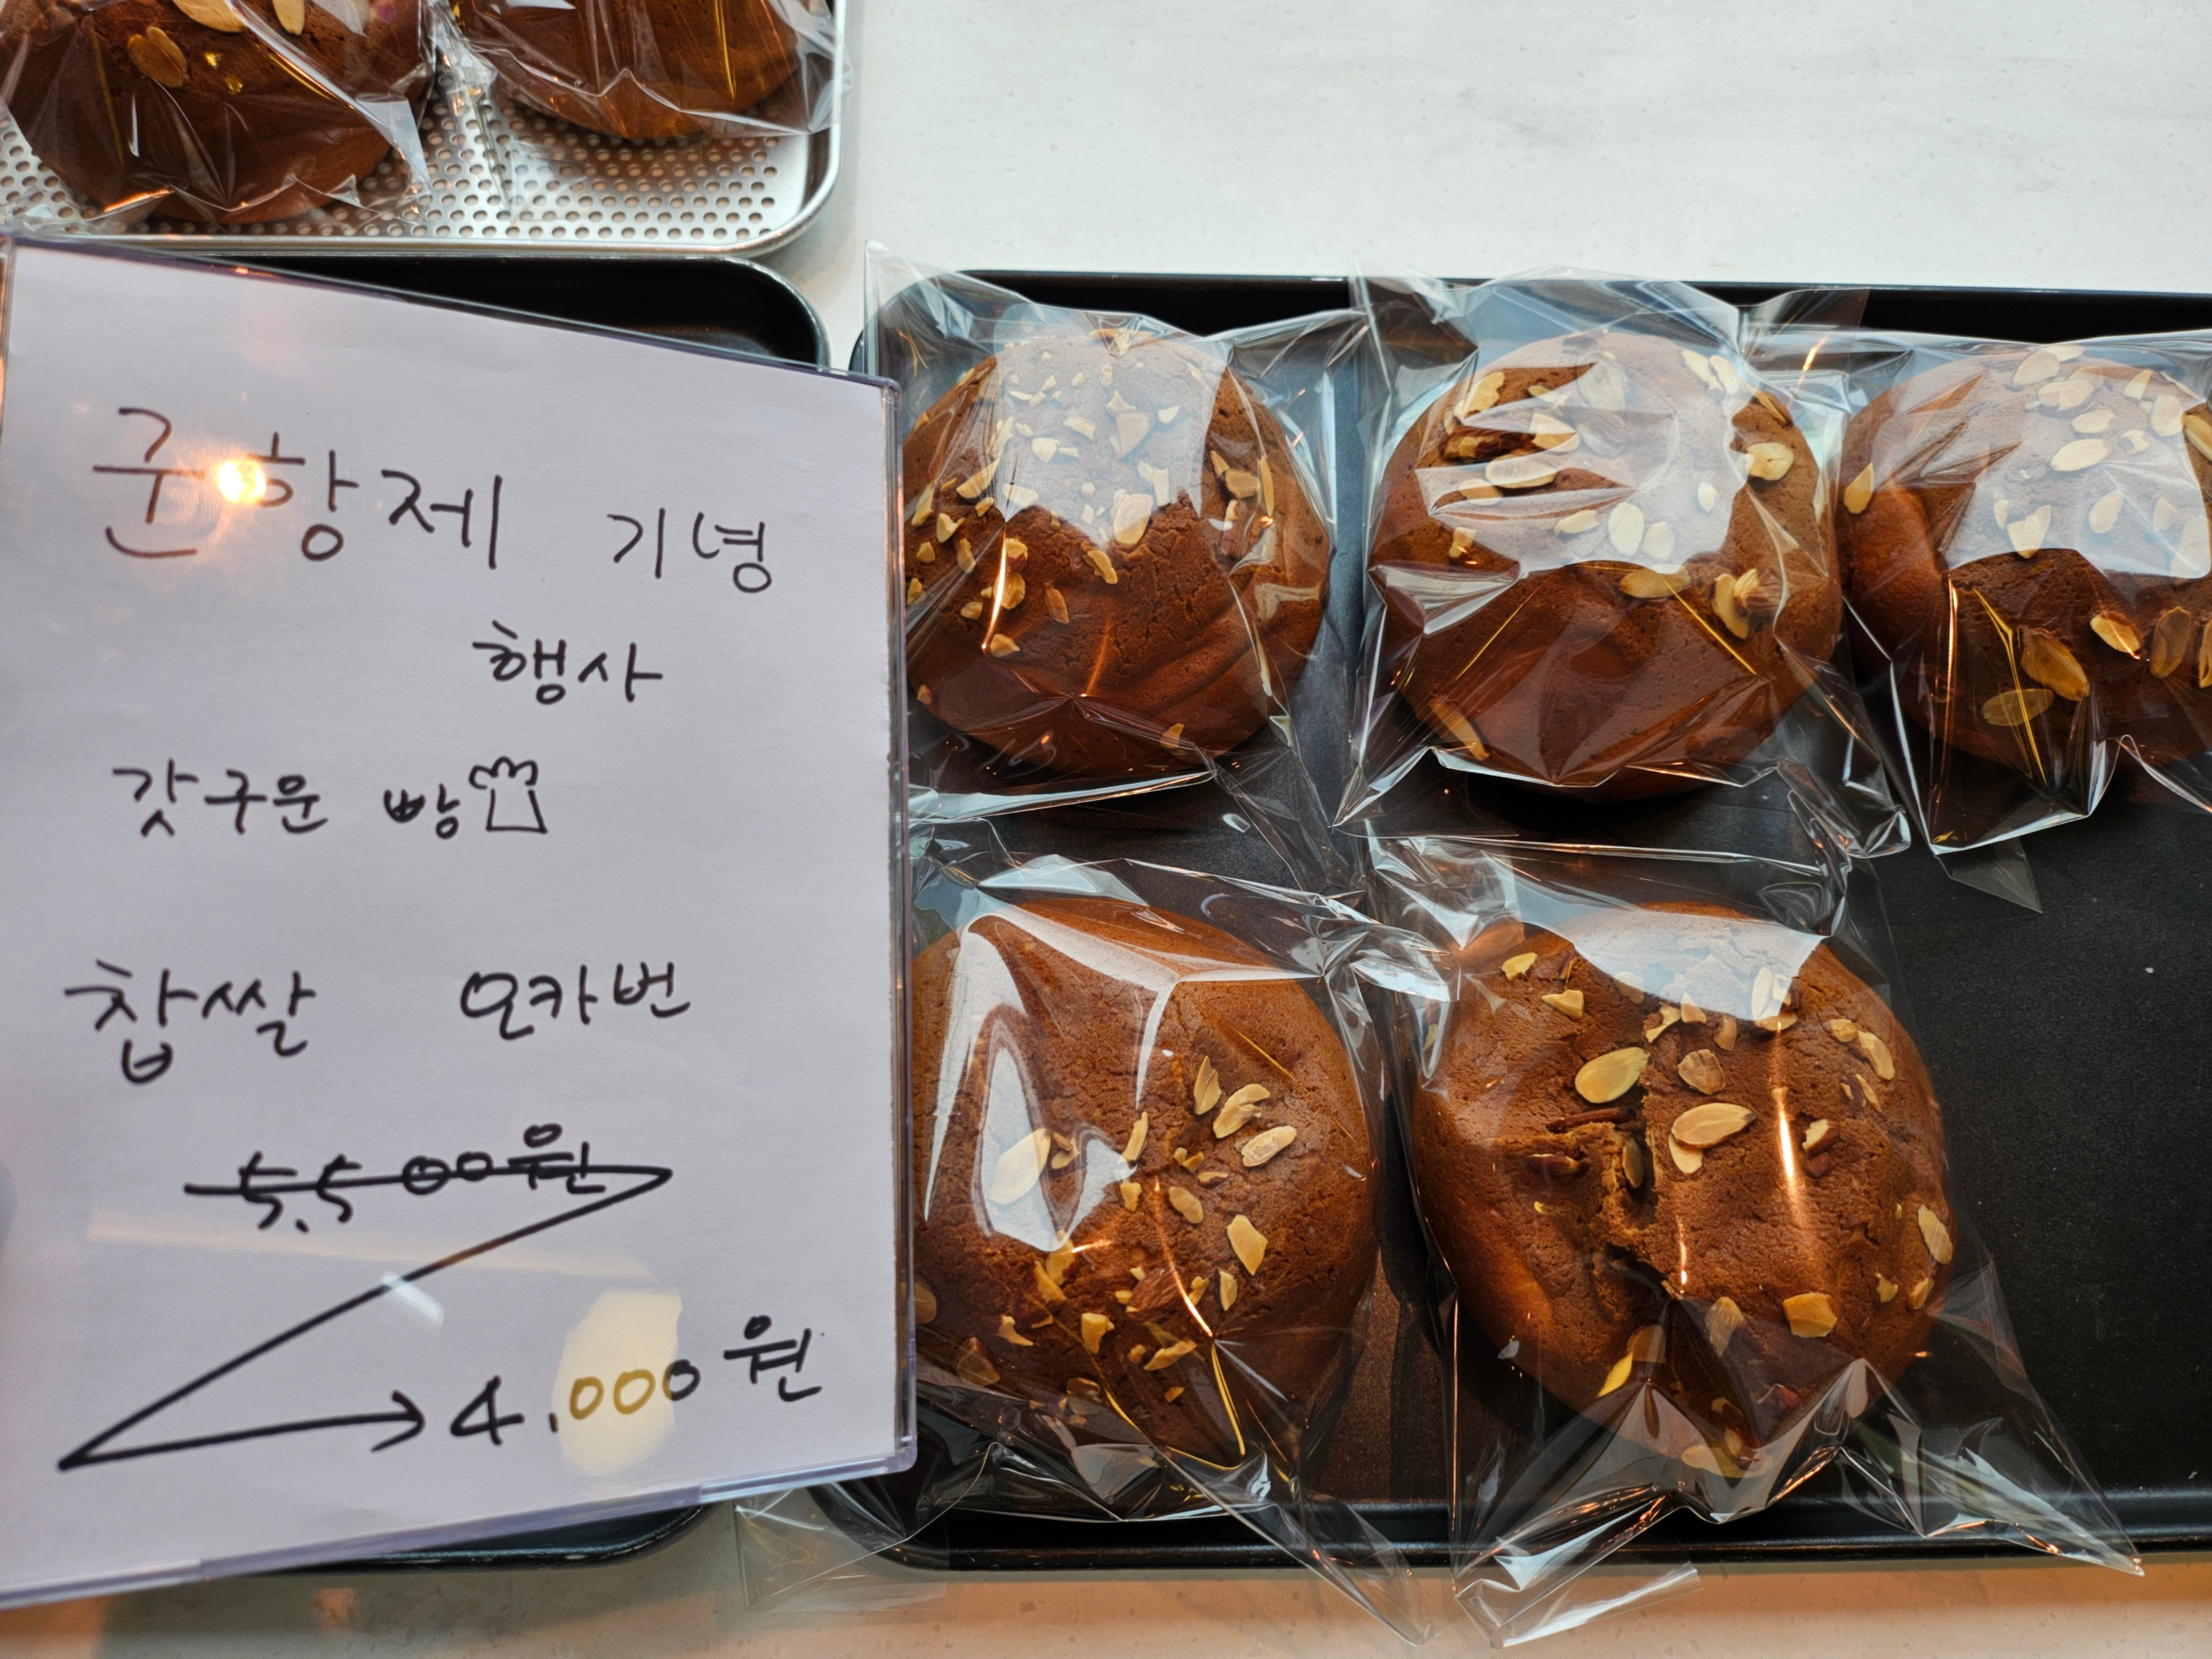 군항제 기념
행사
갓구운 빵
찹쌀 모카번
5.500원
4.000원